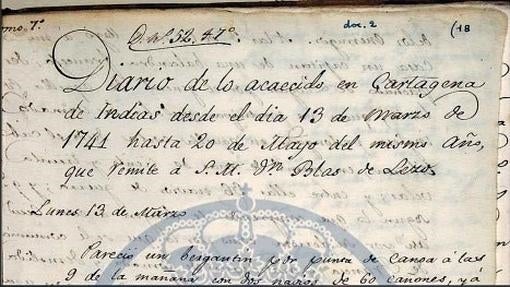 Tomo 7.º
D. nº. 52. 47º.
doc. 2
(18
Diario de lo acaecido en Cartagena
de Indias desde el dia 13 de Marzo de
1741 hasta 20 de Mayo del mismo año,
que remite a S. M. Dn Blas de Lezo.
Lunes 13 de Marzo
Pareció un bergantin por punta de canoa á las
9 de la mañana con dos navios de 60 cañones, y á